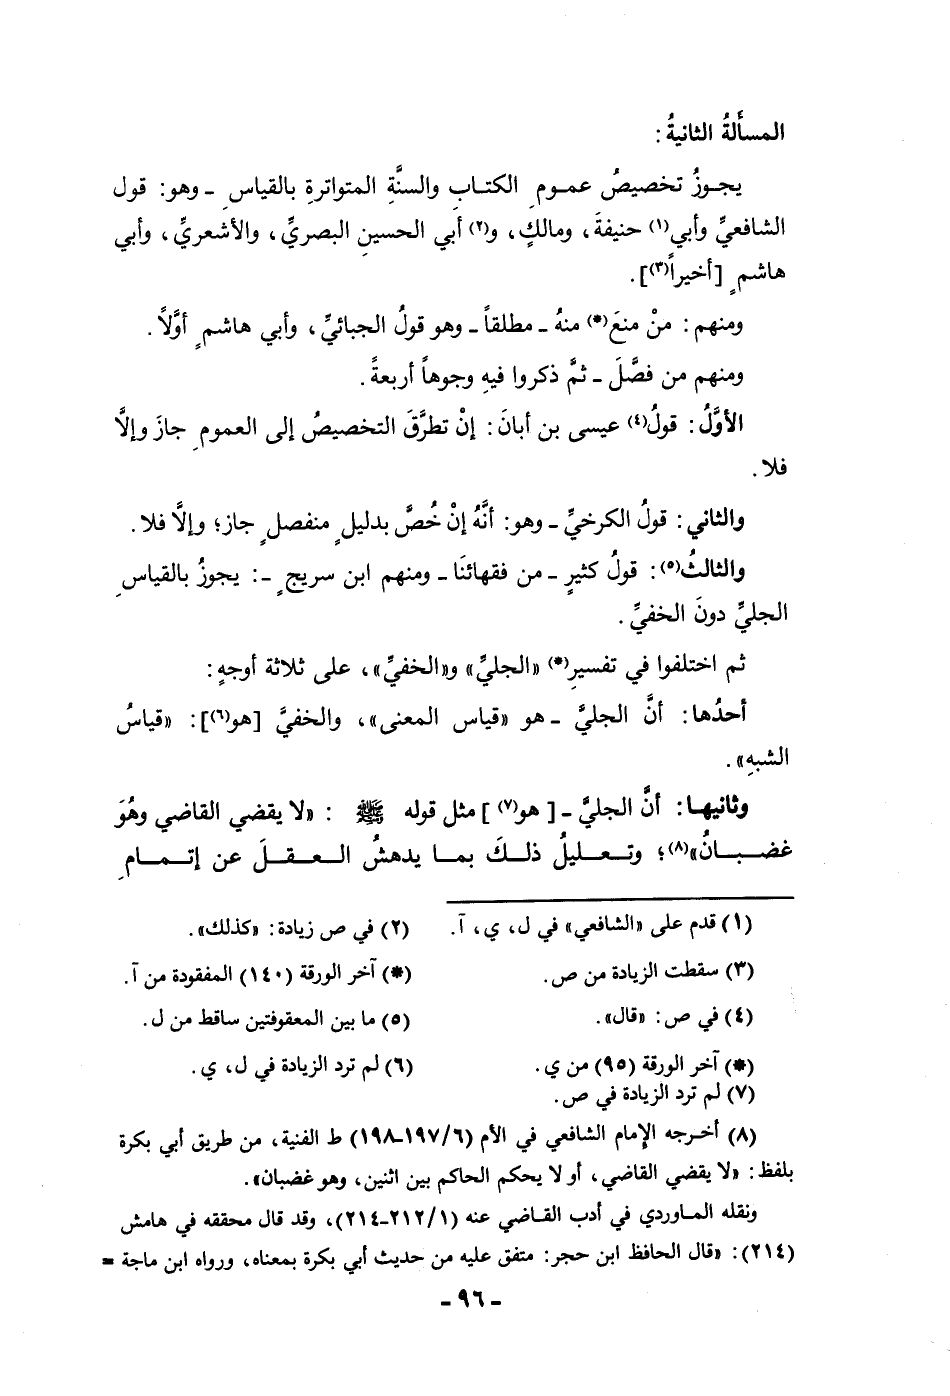 المسأَلةُ الثانيةُ :
يجـوزُ تخصيصُ عمـومِ الكتـابِ والسنَّةِ المتواترةِ بالقياسِ ـ وهو: قول
الشافعيِّ وأبي(١) حنيفةَ، ومالكٍ، و(٢) أبي الحسينِ البصريِّ، والأشعريِّ، وأبي
هاشمٍ [أخيراً(٣)].
ومنهم: منْ منعَ(*) منهُ ـ مطلقاً ـ وهو قولُ الجبائيِّ، وأبي هاشمٍ أوَّلاً.
ومنهم من فصَّلَ ـ ثمَّ ذكروا فيهِ وجوهاً أربعةً.
الأوَّلُ: قولُ(٤) عيسى بن أبانَ: إنْ تطرَّقَ التخصيصُ إلى العمومِ جازَ وإلَّا
فلا.
والثاني: قولُ الكرخيِّ ـ وهو: أنَّهُ إنْ خُصَّ بدليلٍ منفصلٍ جاز؛ وإلَّا فلا.
والثالثُ(٥): قولُ كثيرٍ ـ من فقهائنَا ـ ومنهم ابن سريجٍ ـ: يجوزُ بالقياسِ
الجليِّ دونَ الخفيِّ.
ثم اختلفوا في تفسيرِ(*) «الجليِّ» و«الخفيِّ»، على ثلاثة أوجهٍ:
أحدُها: أنَّ الجليَّ ـ هو «قياس المعنى»، والخفيَّ [هو(٦)]: «قياسُ
الشبهِ».
وثانيهـا: أنَّ الجليَّ ـ [ هو(٧) ] مثل قوله ﷺ : «لا يقضي القاضي وهُوَ
غضـبـانُ»(٨)؛ وتـعـليلُ ذلـكَ بمـا يدهشُ الـعـقلَ عن إتـمـامِ
(١) قدم على «الشافعي» في ل، ي، آ.
(٢) في ص زيادة: «كذلك».
(٣) سقطت الزيادة من ص.
(*) آخر الورقة (١٤٠) المفقودة من آ.
(٤) في ص: «قال».
(٥) ما بين المعقوفتين ساقط من ل.
(*) آخر الورقة (٩٥) من ي.
(٦) لم ترد الزيادة في ل، ي.
(٧) لم ترد الزيادة في ص.
(٨) أخـرجه الإمام الشافعي في الأم (١٩٧/٦-١٩٨) ط الفنية، من طريق أبي بكرة
بلفظ: «لا يقضي القاضي، أو لا يحكم الحاكم بين اثنين، وهو غضبان».
ونقله المـاوردي في أدب القـاضي عنه (٢١٢/١-٢١٤)، وقد قال محققه في هامش
(٢١٤): «قال الحافظ ابن حجر: متفق عليه من حديث أبي بكرة بمعناه، ورواه ابن ماجة =
- ٩٦ -